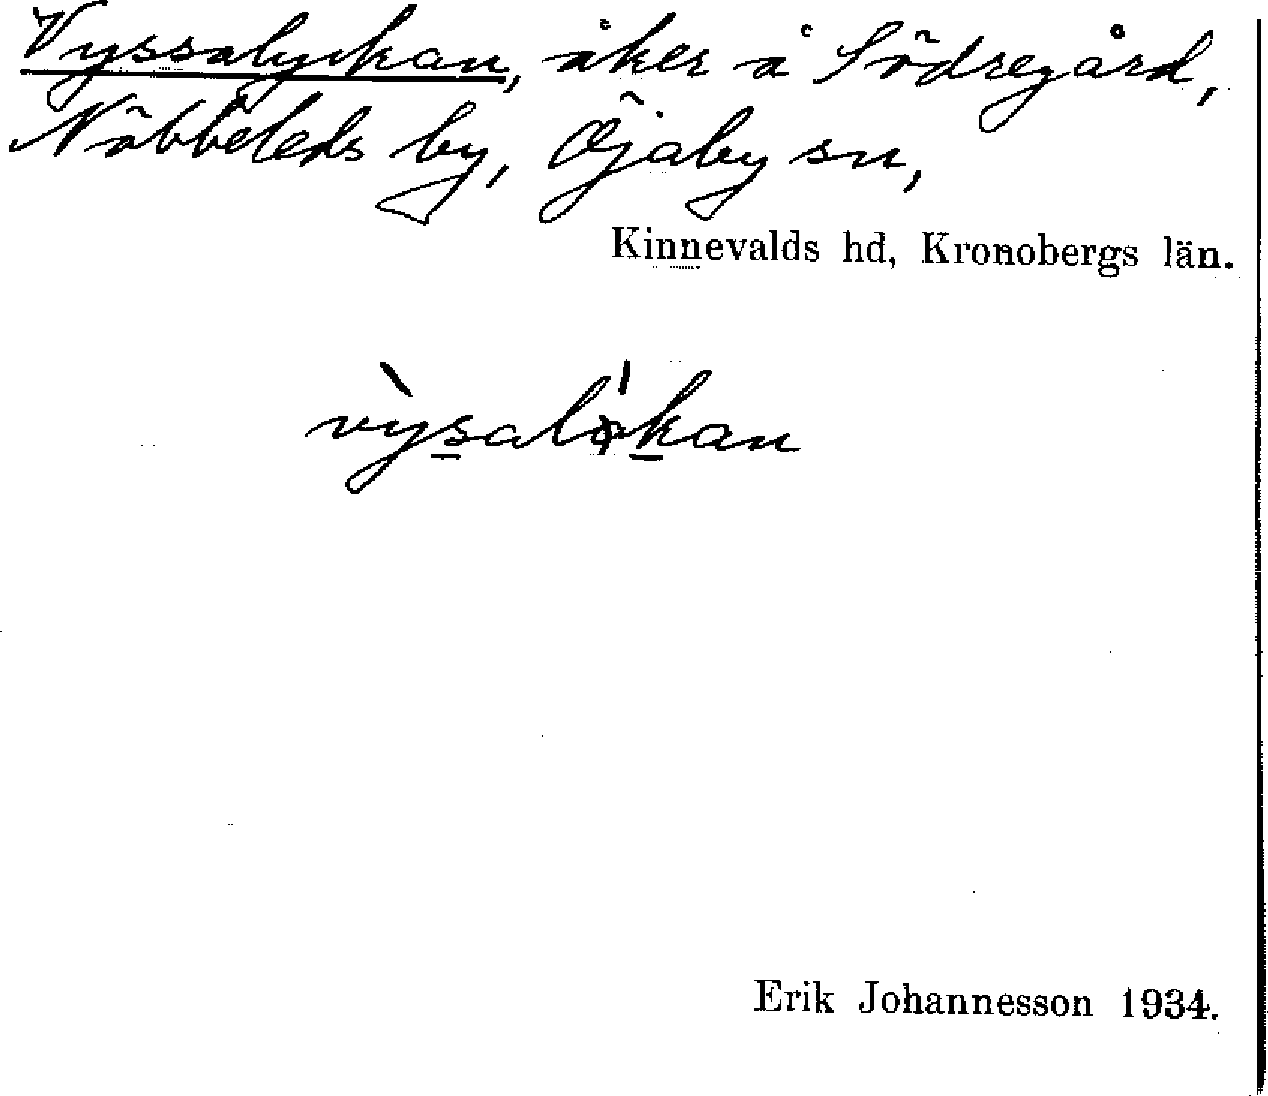 Vyssalyckan, åker å Södregård,
Nöbbeleds by, Öjaby sn,
Kinnevalds hd, Kronobergs län.
vysaløkan
Erik Johannesson 1934.